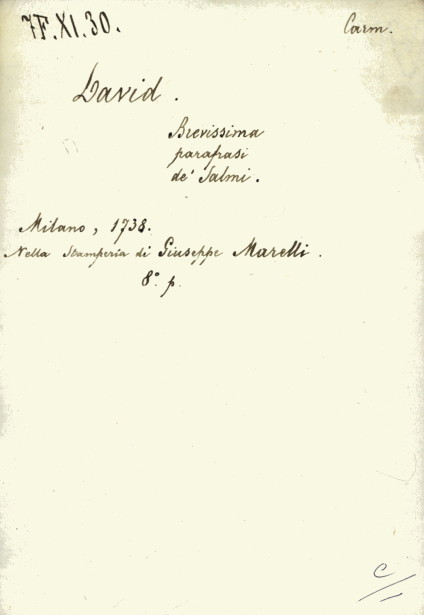 7F.XI.30.
Carm.
David.
Brevissima
parafrasi
de' Salmi.
Milano, 1738.
Nella Stamperia di Giuseppe Marelli.
8° p.
C